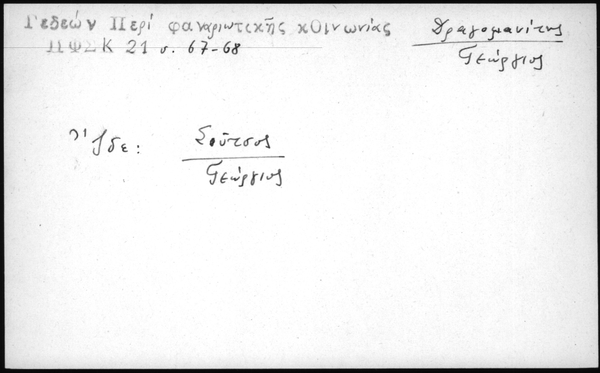 Γεδεών Περί φαναριωτικῆς κοινωνίας
ΠΦΣΚ 21 σ. 67-68
Δραγομανίτης
Γεώργιος
Ἴδε:
Σοῦτσος
Γεώργιος